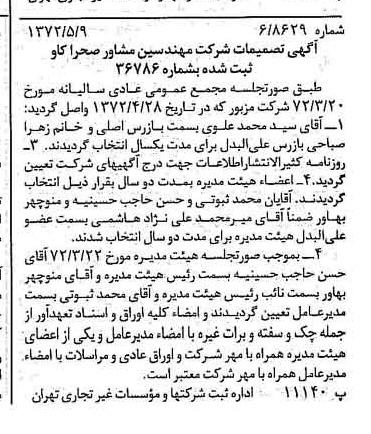 شماره ۶/۸۶۲۹ ۱۳۷۲/۵/۹
آگهی تصمیمات شرکت مهندسین مشاور صحرا کاو
ثبت شده بشماره ۳۶۷۸۶
طبق صورتجلسه مجمع عمومی عادی سالیانه مورخ
۷۲/۳/۲۰ شرکت مزبور که در تاریخ ۱۳۷۲/۴/۲۸ واصل گردید:
۱ــ آقای سید محمد علوی بسمت بازرس اصلی و خانم زهرا
صباحی بازرس علی‌البدل برای مدت یکسال انتخاب گردیدند. ۳ــ
روزنامه کثیرالانتشار اطلاعات جهت درج آگهیهای شرکت تعیین
گردید. ۴ــ اعضاء هیئت مدیره بمدت دو سال بقرار ذیل انتخاب
گردیدند. آقایان محمد ثبوتی و حسن حاجب حسینیه و منوچهر
بهاور ضمناً آقای میرمحمد علی نژاد هاشمی بسمت عضو
علی‌البدل هیئت مدیره برای مدت دو سال انتخاب شدند.
۴ــ بموجب صورتجلسه هیئت مدیره مورخ ۷۲/۳/۲۲ آقای
حسن حاجب حسینیه بسمت رئیس هیئت مدیره و آقای منوچهر
بهاور بسمت نائب رئیس هیئت مدیره و آقای محمد ثبوتی بسمت
مدیرعامل تعیین گردیدند و امضاء کلیه اوراق و اسناد تعهدآور از
جمله چک و سفته و برات غیره با امضاء مدیرعامل و یکی از اعضای
هیئت مدیره همراه با مهر شرکت و اوراق عادی و مراسلات با امضاء
مدیرعامل همراه با مهر شرکت معتبر است.
پ ۱۱۱۴۰ اداره ثبت شرکتها و مؤسسات غیر تجاری تهران